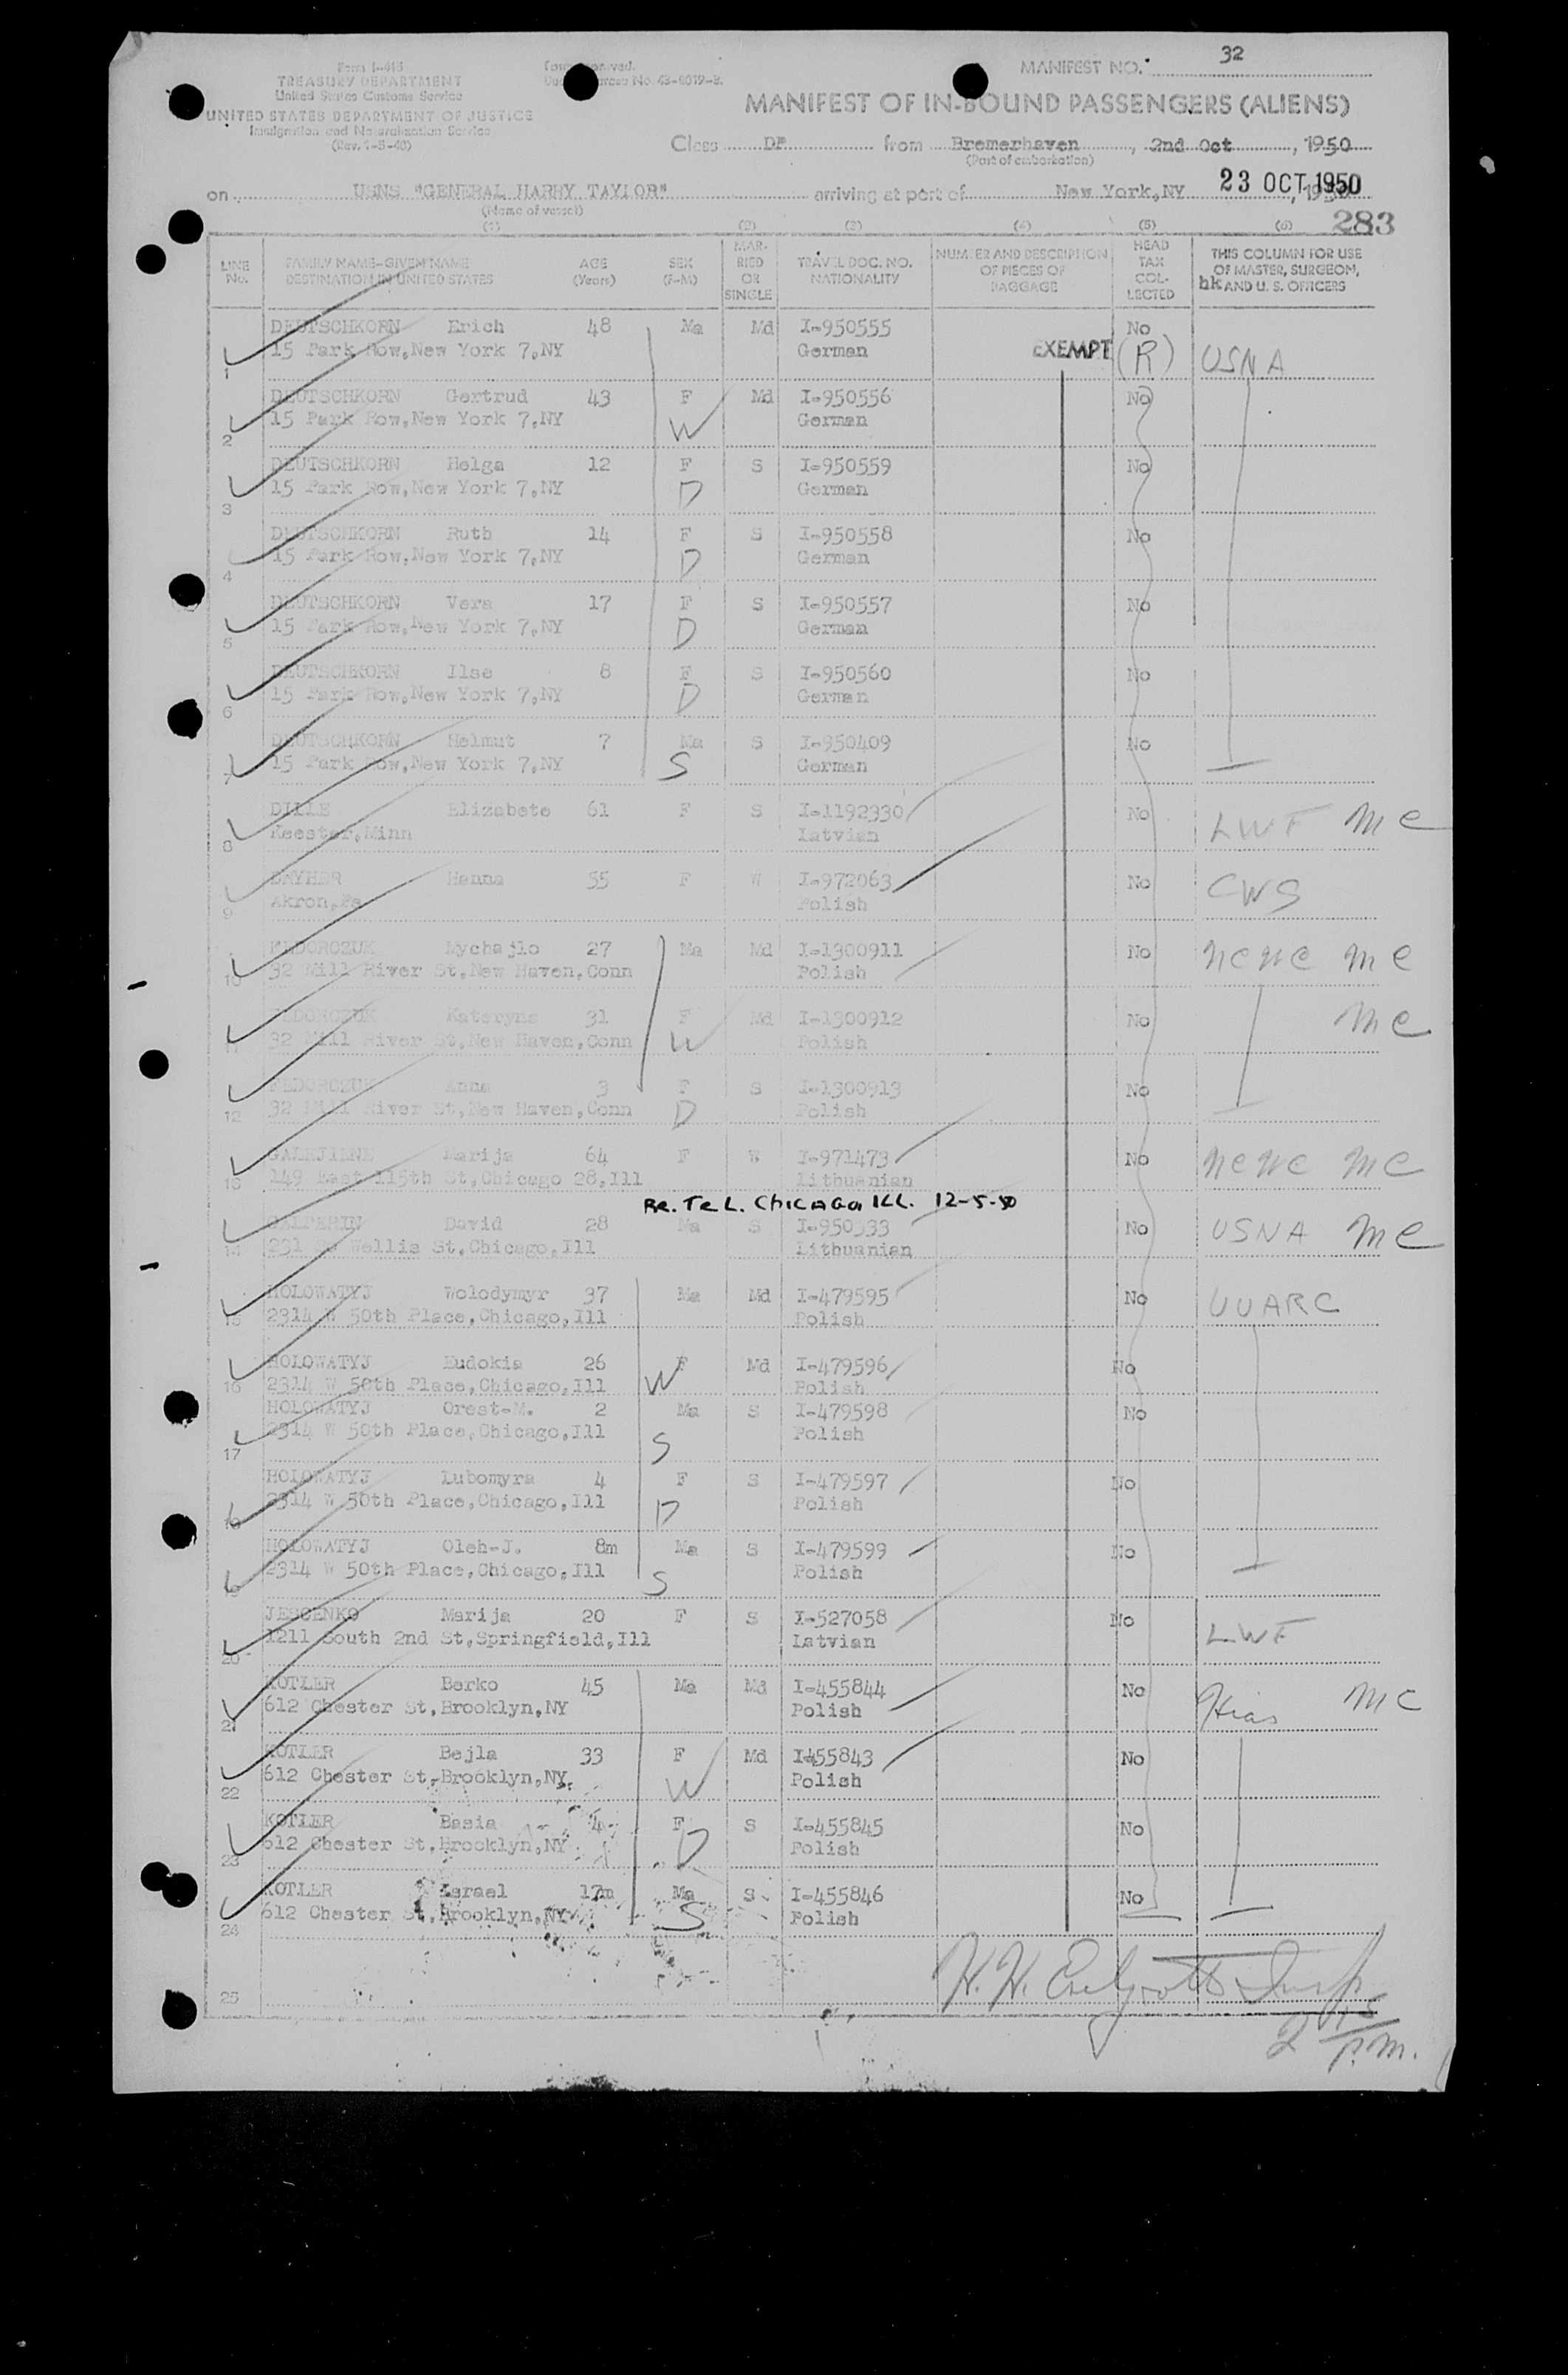 MANIFEST NO. 32
Form I-415
TREASURY DEPARTMENT
United States Customs Service
UNITED STATES DEPARTMENT OF JUSTICE
Immigration and Naturalization Service
Form approved.
MANIFEST OF IN-BOUND PASSENGERS (ALIENS)
Class DP from Bremerhaven, 2nd Oct, 1950
(Port of embarkation)
on USNS "GENERAL HARRY TAYLOR" arriving at port of New York,NY 23 OCT 1950
(Name of vessel)
283
(1) (2) (3) (4) (5) (6)
LINE No. FAMILY NAME-GIVEN NAME DESTINATION IN UNITED STATES AGE (Years) SEX (F-M) MARRIED OR SINGLE TRAVEL DOC. NO. NATIONALITY NUMBER AND DESCRIPTION OF PIECES OF BAGGAGE HEAD TAX COLLECTED THIS COLUMN FOR USE OF MASTER, SURGEON, hk AND U. S. OFFICERS
DEUTSCHKORN Erich 48 Ma Md I-950555 No
1 15 Park Row,New York 7,NY German EXEMPT (R) USNA
DEUTSCHKORN Gertrud 43 F Md I-950556 No
2 15 Park Row,New York 7,NY W German
DEUTSCHKORN Helga 12 F S I-950559 No
3 15 Park Row,New York 7,NY D German
DEUTSCHKORN Ruth 14 F S I-950558 No
4 15 Park Row,New York 7,NY D German
DEUTSCHKORN Vera 17 F S I-950557 No
5 15 Park Row,New York 7,NY D German
DEUTSCHKORN Ilse 8 F S I-950560 No
6 15 Park Row,New York 7,NY D German
DEUTSCHKORN Helmut 7 Ma S I-950409 No
7 15 Park Row,New York 7,NY S German
DILLE Elizabete 61 F S I-1192330 No LWF mc
8 Keester,Minn Latvian
Hanna 55 F W I-972063 No CWS
9 Akron,Pa Polish
FEDORCZUK Mychajlo 27 Ma Md I-1300911 No ncwc mc
10 32 Mill River St,New Haven,Conn Polish
FEDORCZUK Kateryna 31 F Md I-1300912 No mc
11 32 Mill River St,New Haven,Conn W Polish
FEDORCZUK Anna 3 F S I-1300913 No
12 32 Mill River St,New Haven,Conn D Polish
GALEJIENE Marija 64 F W I-971473 No ncwc mc
13 149 East 115th St,Chicago 28,Ill Lithuanian
Re. Tel. Chicago Ill. 12-5-50
GALPERIN David 28 Ma S I-950333 No USNA mc
14 231 So Wellis St,Chicago,Ill Lithuanian
HOLOWATYJ Wolodymyr 37 Ma Md I-479595 No UUARC
15 2314 W 50th Place,Chicago,Ill Polish
HOLOWATYJ Eudokia 26 F Md I-479596 No
16 2314 W 50th Place,Chicago,Ill W Polish
HOLOWATYJ Orest-M. 2 Ma S I-479598 No
17 2314 W 50th Place,Chicago,Ill S Polish
HOLOWATYJ Lubomyra 4 F S I-479597 No
18 2314 W 50th Place,Chicago,Ill D Polish
HOLOWATYJ Oleh-J. 8m Ma S I-479599 No
19 2314 W 50th Place,Chicago,Ill S Polish
JESCENKO Marija 20 F S I-527058 No LWF
20 1211 South 2nd St,Springfield,Ill Latvian
KOTLER Berko 45 Ma Md I-455844 No Hias mc
21 612 Chester St,Brooklyn,NY Polish
KOTLER Bejla 33 F Md I-455843 No
22 612 Chester St,Brooklyn,NY W Polish
KOTLER Basia 4 F S I-455845 No
23 612 Chester St,Brooklyn,NY D Polish
KOTLER Israel 17m Ma S I-455846 No
24 612 Chester St,Brooklyn,NY S Polish
25
H. H. Insp
2 15 p.m.